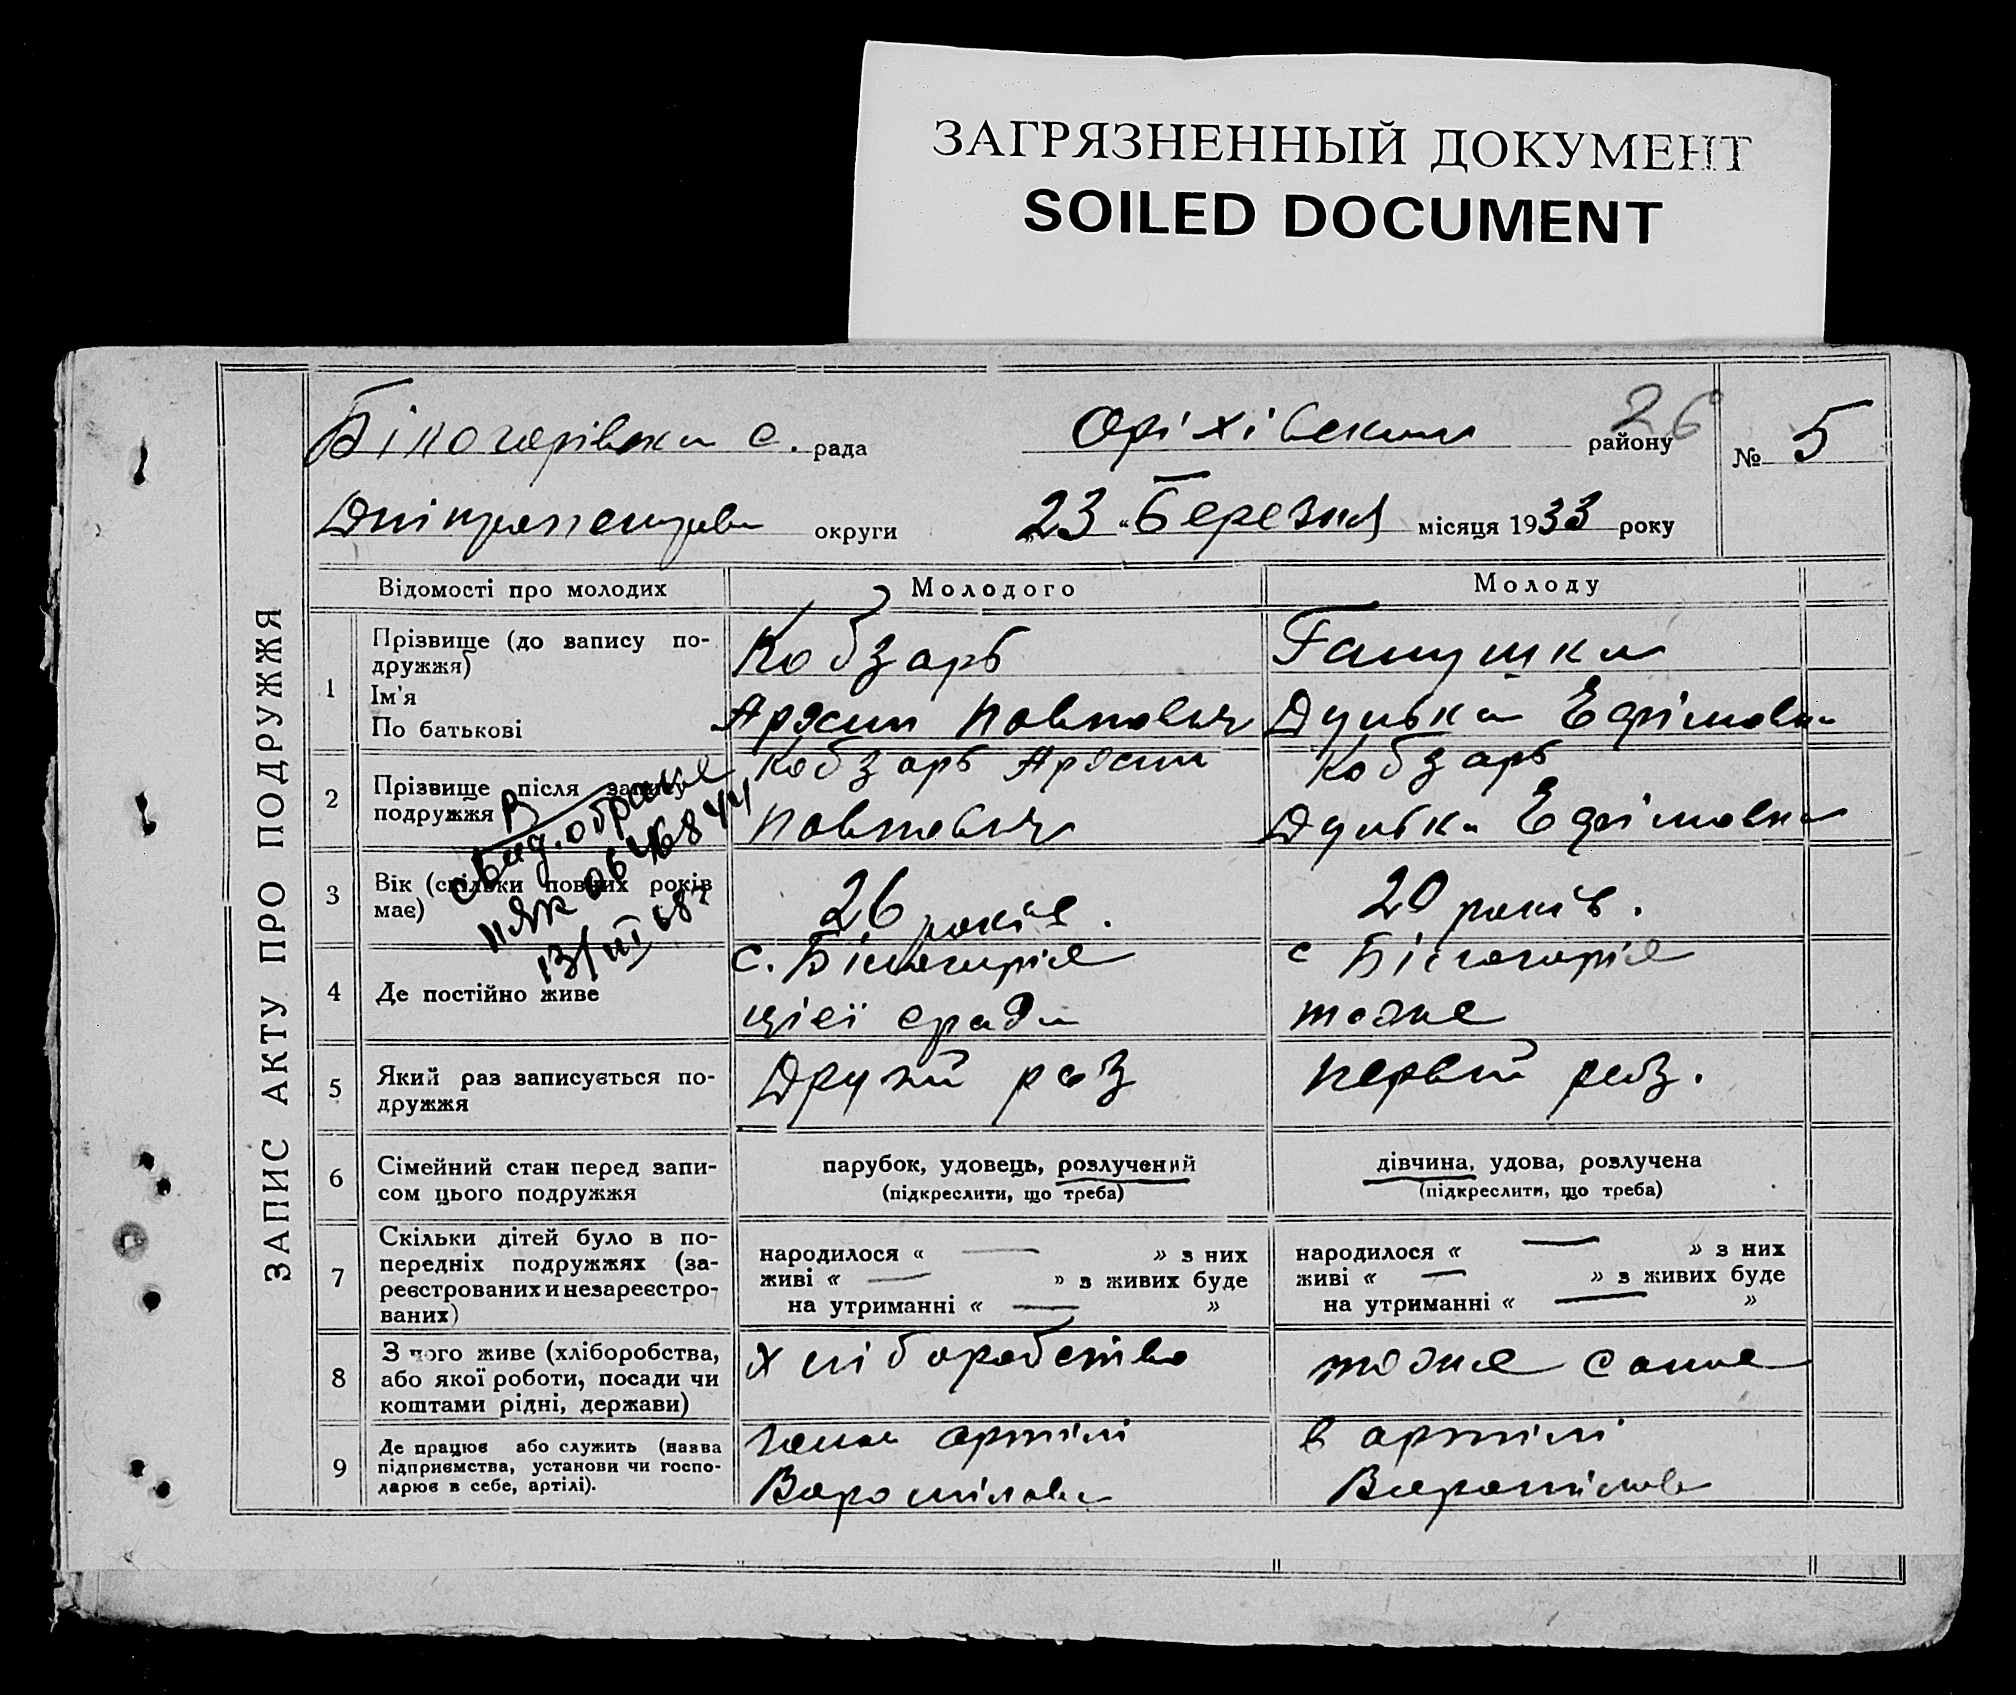 ЗАГРЯЗНЕННЫЙ ДОКУМЕНТ
SOILED DOCUMENT
ЗАПИС АКТУ ПРО ПОДРУЖЖЯ
с. рада Оріхівський району 26 № 5
округи „23 “ Березня місяця 1933 року
Відомості про молодих Молодого Молоду
1 Прізвище (до запису по-
дружжя)
Ім'я
По батькові
Кобзарь
Павлович
Дунька Ефімовна
2 Прізвище після запису
подружжя
Кобзарь
Павлович
Кобзарь
Дунька Ефімовна
В
свид. о браке
3 Вік (скільки повних років
має)
26 років.
20 років.
4 Де постійно живе
с. Білогоріє
цієї сради
с Білогоріє
тоже
5 Який раз записується по-
дружжя
Другий раз
первий раз.
6 Сімейний стан перед запи-
сом цього подружжя
парубок, удовець, розлучений
(підкреслити, що треба)
дівчина, удова, розлучена
(підкреслити, що треба)
7 Скільки дітей було в по-
передніх подружжях (за-
реєстрованих и незареєстро-
ваних)
народилося « — » з них
живі « — » з живих буде
на утриманні « — »
народилося « — » з них
живі « — » з живих буде
на утриманні « — »
8 З чого живе (хліборобства,
або якої роботи, посади чи
коштами рідні, держави)
хліборобство
тоже саме
9 Де працює або служить (назва
підприємства, установи чи госпо-
дарює в себе, артілі).
член артілі
Ворошілова
в артілі
Ворошілова